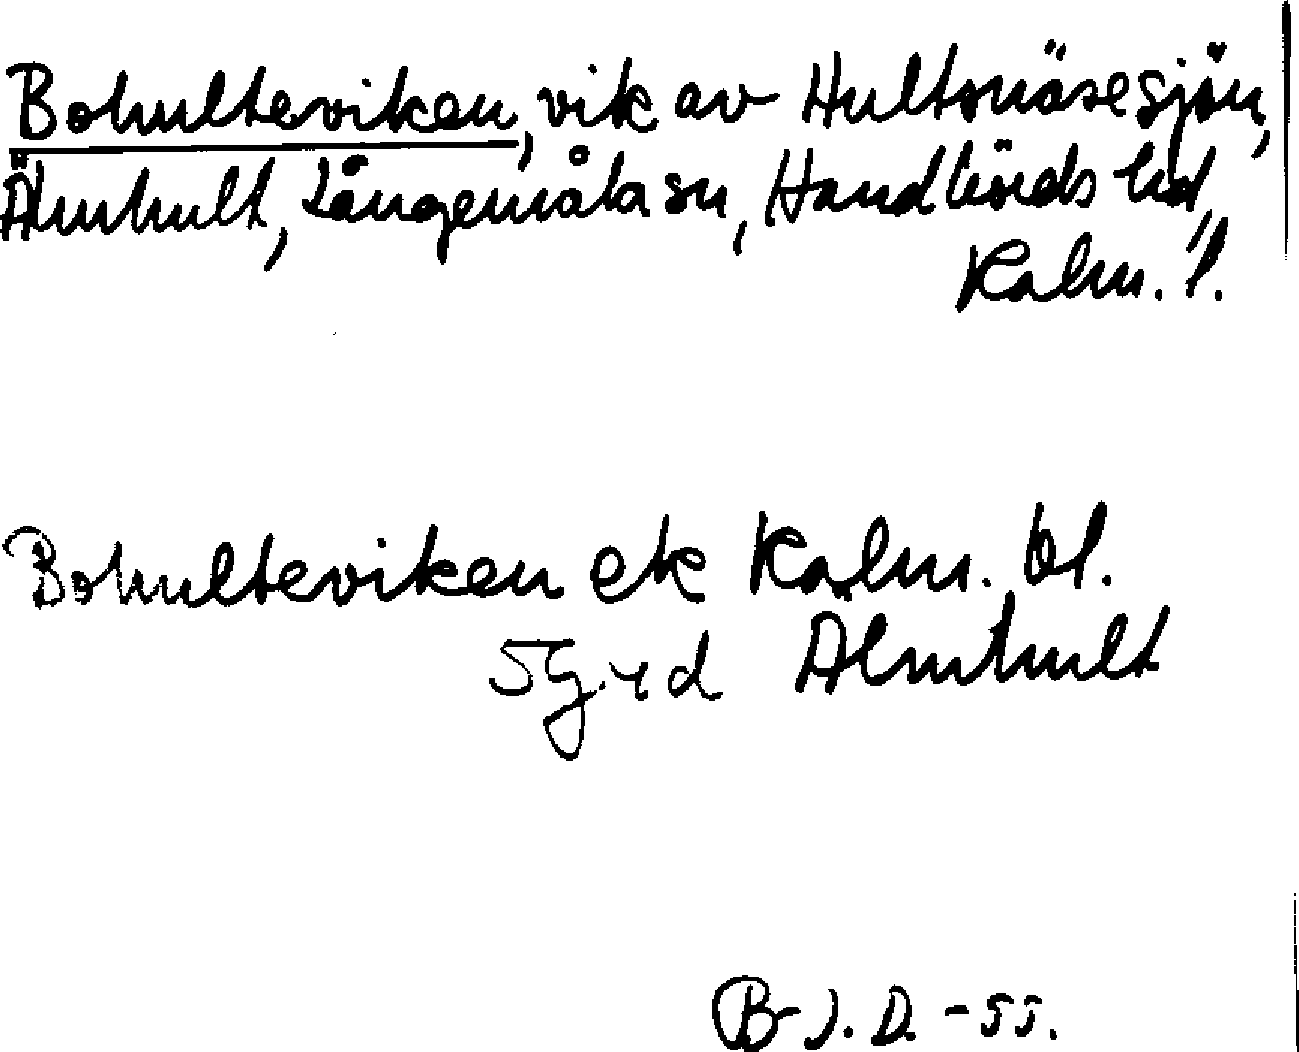 Bohulteviken, vik av Hultsnäsesjön,
Älmhult, Långemåla sn, Handbörds hd,
Kalm. l.
Bohulteviken ek Kalm. bl.
5G.yd Älmhult
B-J. D. -55.